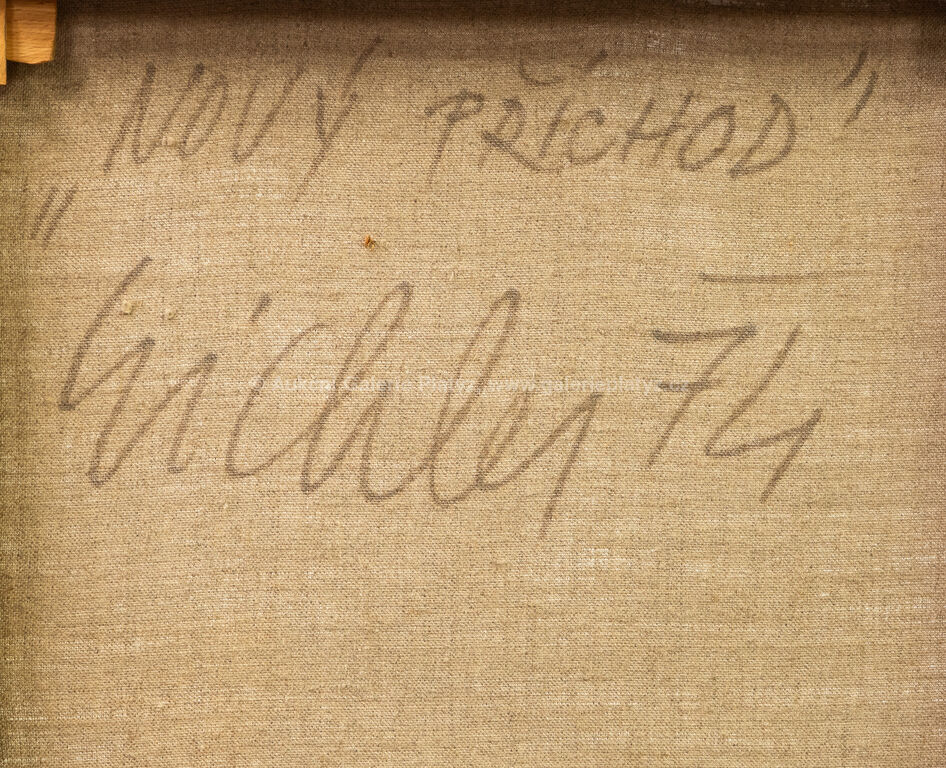 "NOVÝ PŘÍCHOD"
Eichler 74
© Aukční Galerie Platýz www.galerieplatyz.cz